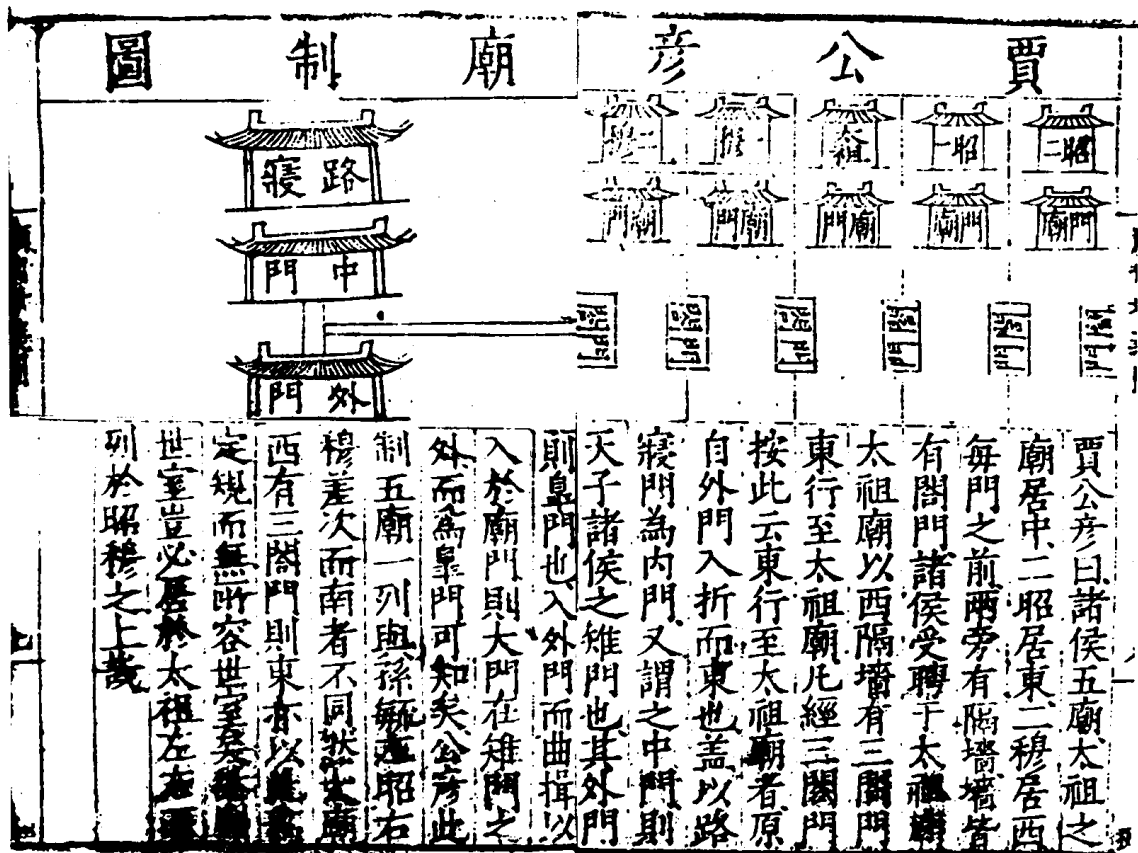 賈公彦廟制圖
二昭
一昭
太祖
一穆
二穆
廟門
廟門
廟門
廟門
廟門
閤門
閤門
閤門
閤門
閤門
閤門
路寢
中門
外門
賈公彦曰諸侯五廟太祖之
廟居中二昭居東二穆居西
每門之前兩旁有隔墻墻皆
有閤門諸侯受聘于太祖廟
太祖廟以西隔墻有三閤門
東行至太祖廟凡經三閤門
按此云東行至太祖廟者原
自外門入折而東也盖以路
寢門為内門又謂之中門則
天子諸侯之雉門也其外門
則皐門也入外門而曲揖以
入於廟門則大門在雉門之
外而為皐門可知矣公彦此
制五廟一列與孫毓左昭右
穆差次而南者不同然太廟
西有三閤門則東亦以
定規而無所容世室矣
世室豈必居於太祖左右
列於昭穆之上哉